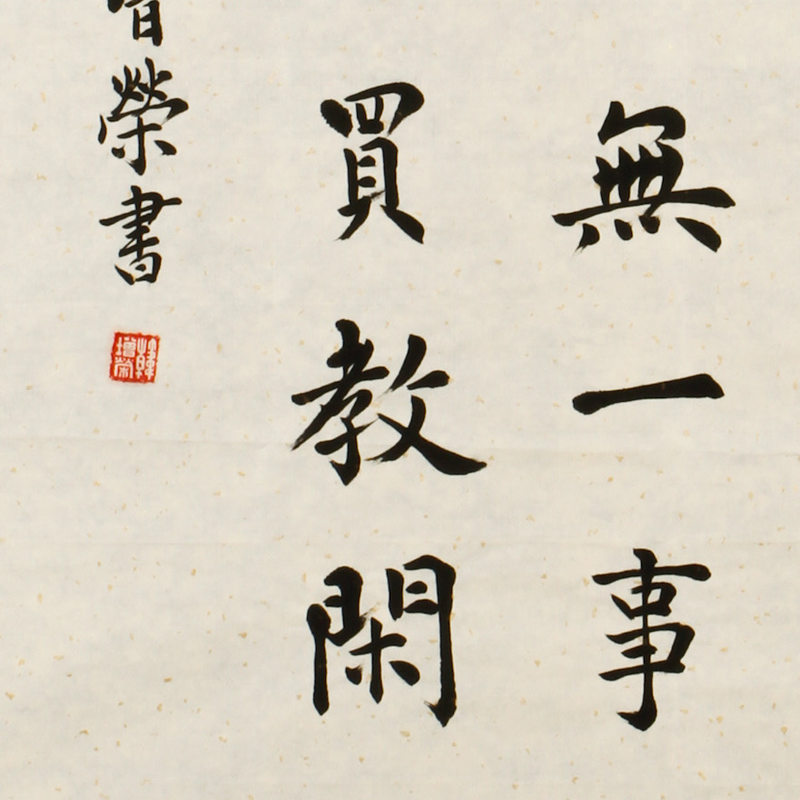 無一事
買教閑
榮書
韓增榮